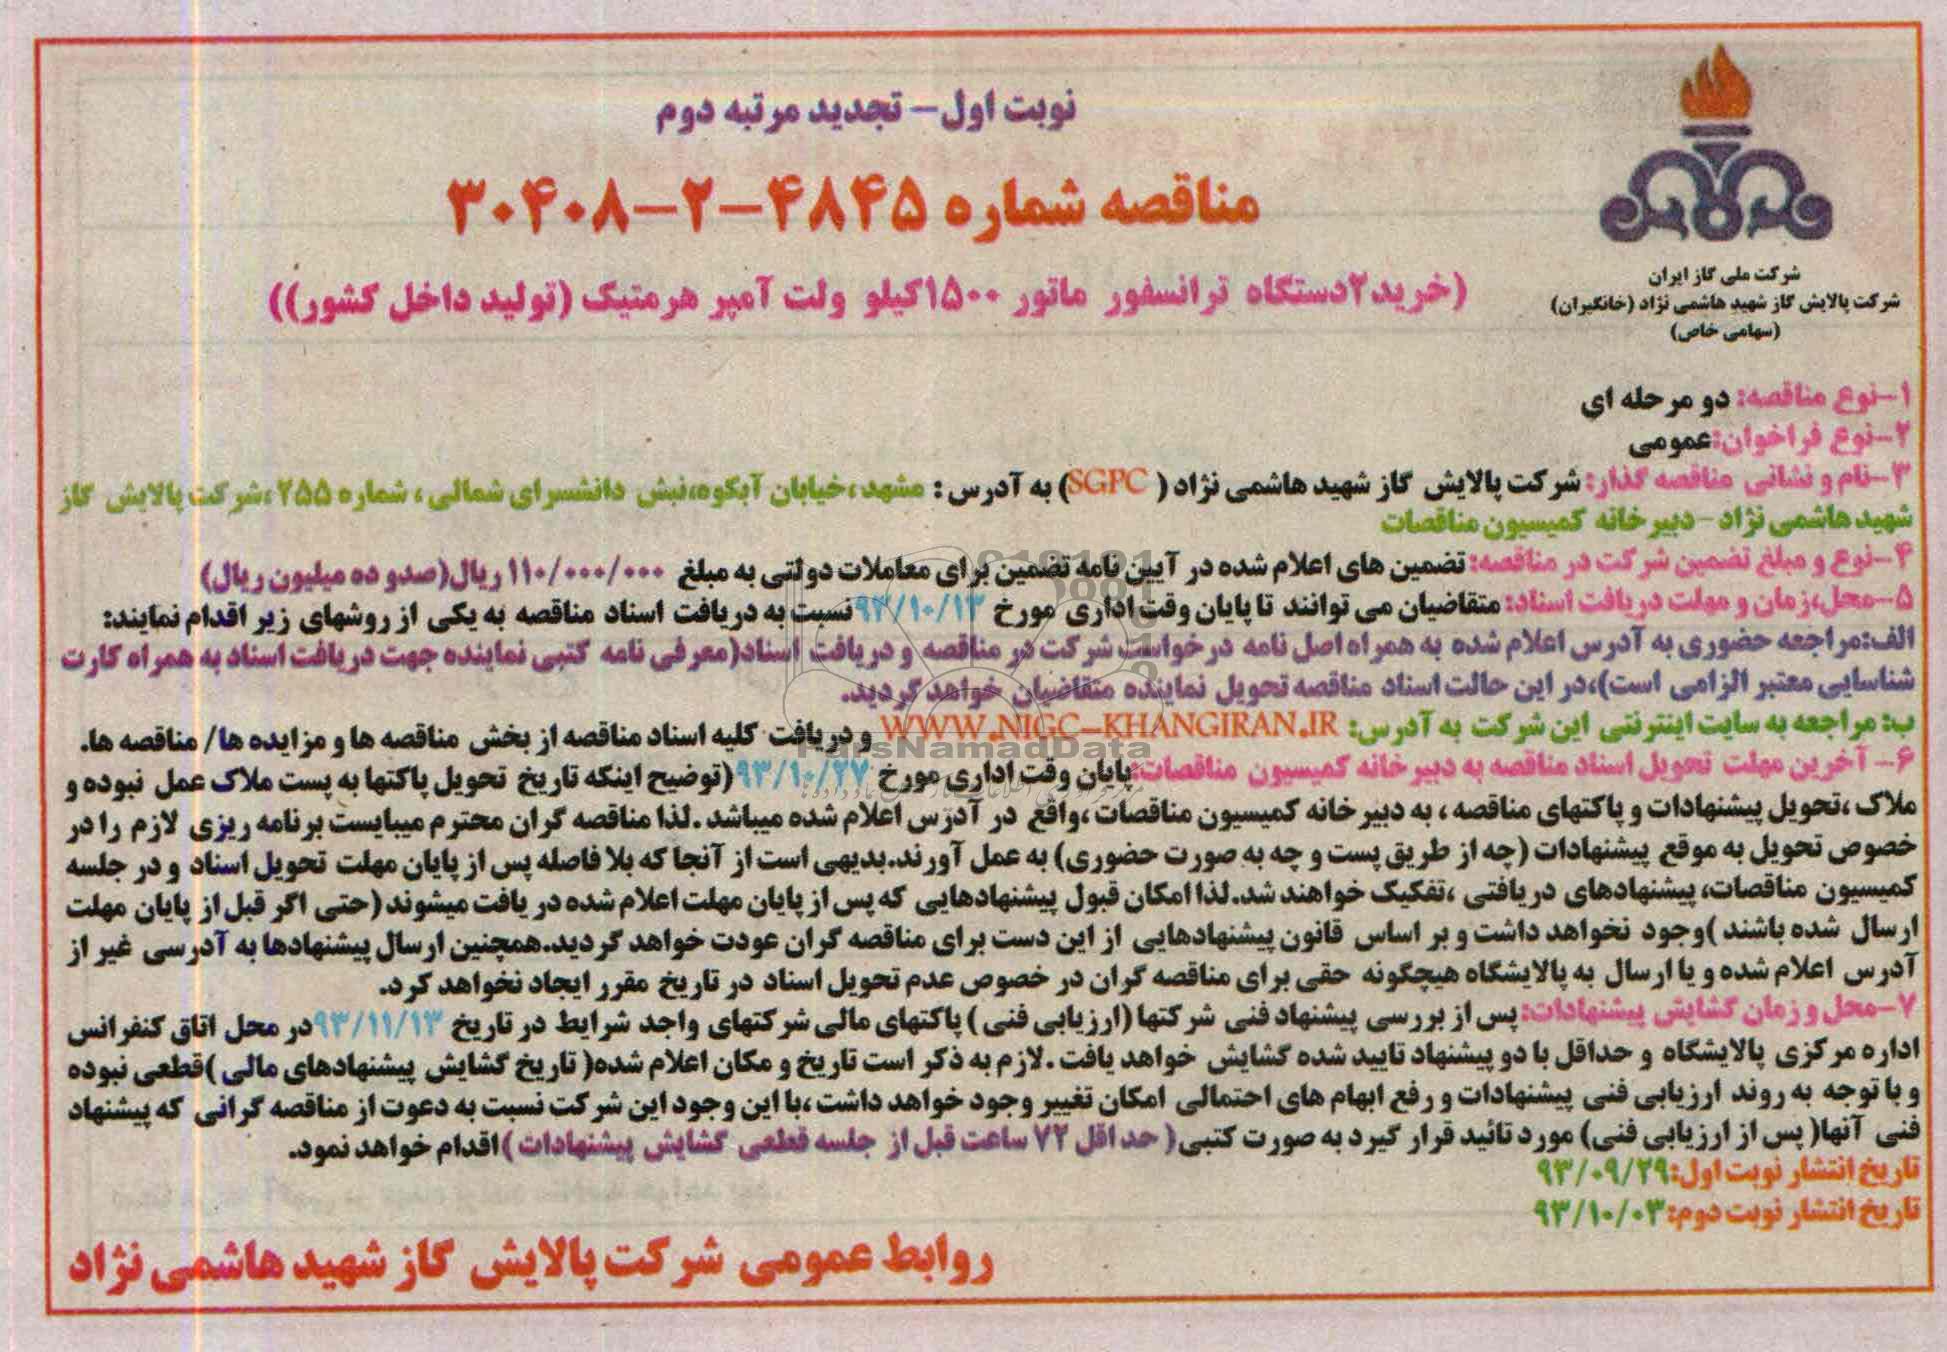 نوبت اول- تجدید مرتبه دوم
مناقصه شماره ۴۸۴۵-۲-۳۰۴۰۸
(خرید۲دستگاه ترانسفور ماتور ۱۵۰۰کیلو ولت آمپر هرمتیک (تولید داخل کشور))
شرکت ملی گاز ایران
شرکت پالایش گاز شهید هاشمی نژاد (خانگیران)
(سهامی خاص)
۱-نوع مناقصه: دو مرحله ای
۲-نوع فراخوان:عمومی
۳-نام و نشانی مناقصه گذار: شرکت پالایش گاز شهید هاشمی نژاد ( SGPC) به آدرس : مشهد ،خیابان آبکوه،نبش دانشسرای شمالی ، شماره ۲۵۵ ،شرکت پالایش گاز
شهید هاشمی نژاد -دبیرخانه کمیسیون مناقصات
۴-نوع و مبلغ تضمین شرکت در مناقصه: تضمین های اعلام شده در آیین نامه تضمین برای معاملات دولتی به مبلغ ۱۱۰/۰۰۰/۰۰۰ ریال(صدو ده میلیون ریال)
۵-محل،زمان و مهلت دریافت اسناد: متقاضیان می توانند تا پایان وقت اداری مورخ ۹۳/۱۰/۱۳ نسبت به دریافت اسناد مناقصه به یکی از روشهای زیر اقدام نمایند:
الف:مراجعه حضوری به آدرس اعلام شده به همراه اصل نامه درخواست شرکت در مناقصه و دریافت اسناد(معرفی نامه کتبی نماینده جهت دریافت اسناد به همراه کارت
شناسایی معتبر الزامی است)،در این حالت اسناد مناقصه تحویل نماینده متقاضیان خواهد گردید.
ب: مراجعه به سایت اینترنتی این شرکت به آدرس: WWW.NIGC-KHANGIRAN.IR و دریافت کلیه اسناد مناقصه از بخش مناقصه ها و مزایده ها/ مناقصه ها.
ParsNamadData
۶- آخرین مهلت تحویل اسناد مناقصه به دبیرخانه کمیسیون مناقصات:پایان وقت اداری مورخ ۹۳/۱۰/۲۷ (توضیح اینکه تاریخ تحویل پاکتها به پست ملاک عمل نبوده و
ملاک ،تحویل پیشنهادات و پاکتهای مناقصه ، به دبیرخانه کمیسیون مناقصات ،واقع در آدرس اعلام شده میباشد .لذا مناقصه گران محترم میبایست برنامه ریزی لازم را در
خصوص تحویل به موقع پیشنهادات (چه از طریق پست و چه به صورت حضوری) به عمل آورند.بدیهی است از آنجا که بلا فاصله پس از پایان مهلت تحویل اسناد و در جلسه
کمیسیون مناقصات، پیشنهادهای دریافتی ،تفکیک خواهند شد.لذا امکان قبول پیشنهادهایی که پس از پایان مهلت اعلام شده دریافت میشوند (حتی اگر قبل از پایان مهلت
ارسال شده باشند )وجود نخواهد داشت و بر اساس قانون پیشنهادهایی از این دست برای مناقصه گران عودت خواهد گردید.همچنین ارسال پیشنهادها به آدرسی غیر از
آدرس اعلام شده و یا ارسال به پالایشگاه هیچگونه حقی برای مناقصه گران در خصوص عدم تحویل اسناد در تاریخ مقرر ایجاد نخواهد کرد.
۷-محل و زمان گشایش پیشنهادات: پس از بررسی پیشنهاد فنی شرکتها (ارزیابی فنی ) پاکتهای مالی شرکتهای واجد شرایط در تاریخ ۹۳/۱۱/۱۳ در محل اتاق کنفرانس
اداره مرکزی پالایشگاه و حداقل با دو پیشنهاد تایید شده گشایش خواهد یافت .لازم به ذکر است تاریخ و مکان اعلام شده( تاریخ گشایش پیشنهادهای مالی )قطعی نبوده
و با توجه به روند ارزیابی فنی پیشنهادات و رفع ابهام های احتمالی امکان تغییر وجود خواهد داشت ،با این وجود این شرکت نسبت به دعوت از مناقصه گرانی که پیشنهاد
فنی آنها( پس از ارزیابی فنی) مورد تائید قرار گیرد به صورت کتبی ( حداقل ۷۲ ساعت قبل از جلسه قطعی گشایش پیشنهادات ) اقدام خواهد نمود.
تاریخ انتشار نوبت اول:۹۳/۰۹/۲۹
تاریخ انتشار نوبت دوم:۹۳/۱۰/۰۳
روابط عمومی شرکت پالایش گاز شهید هاشمی نژاد